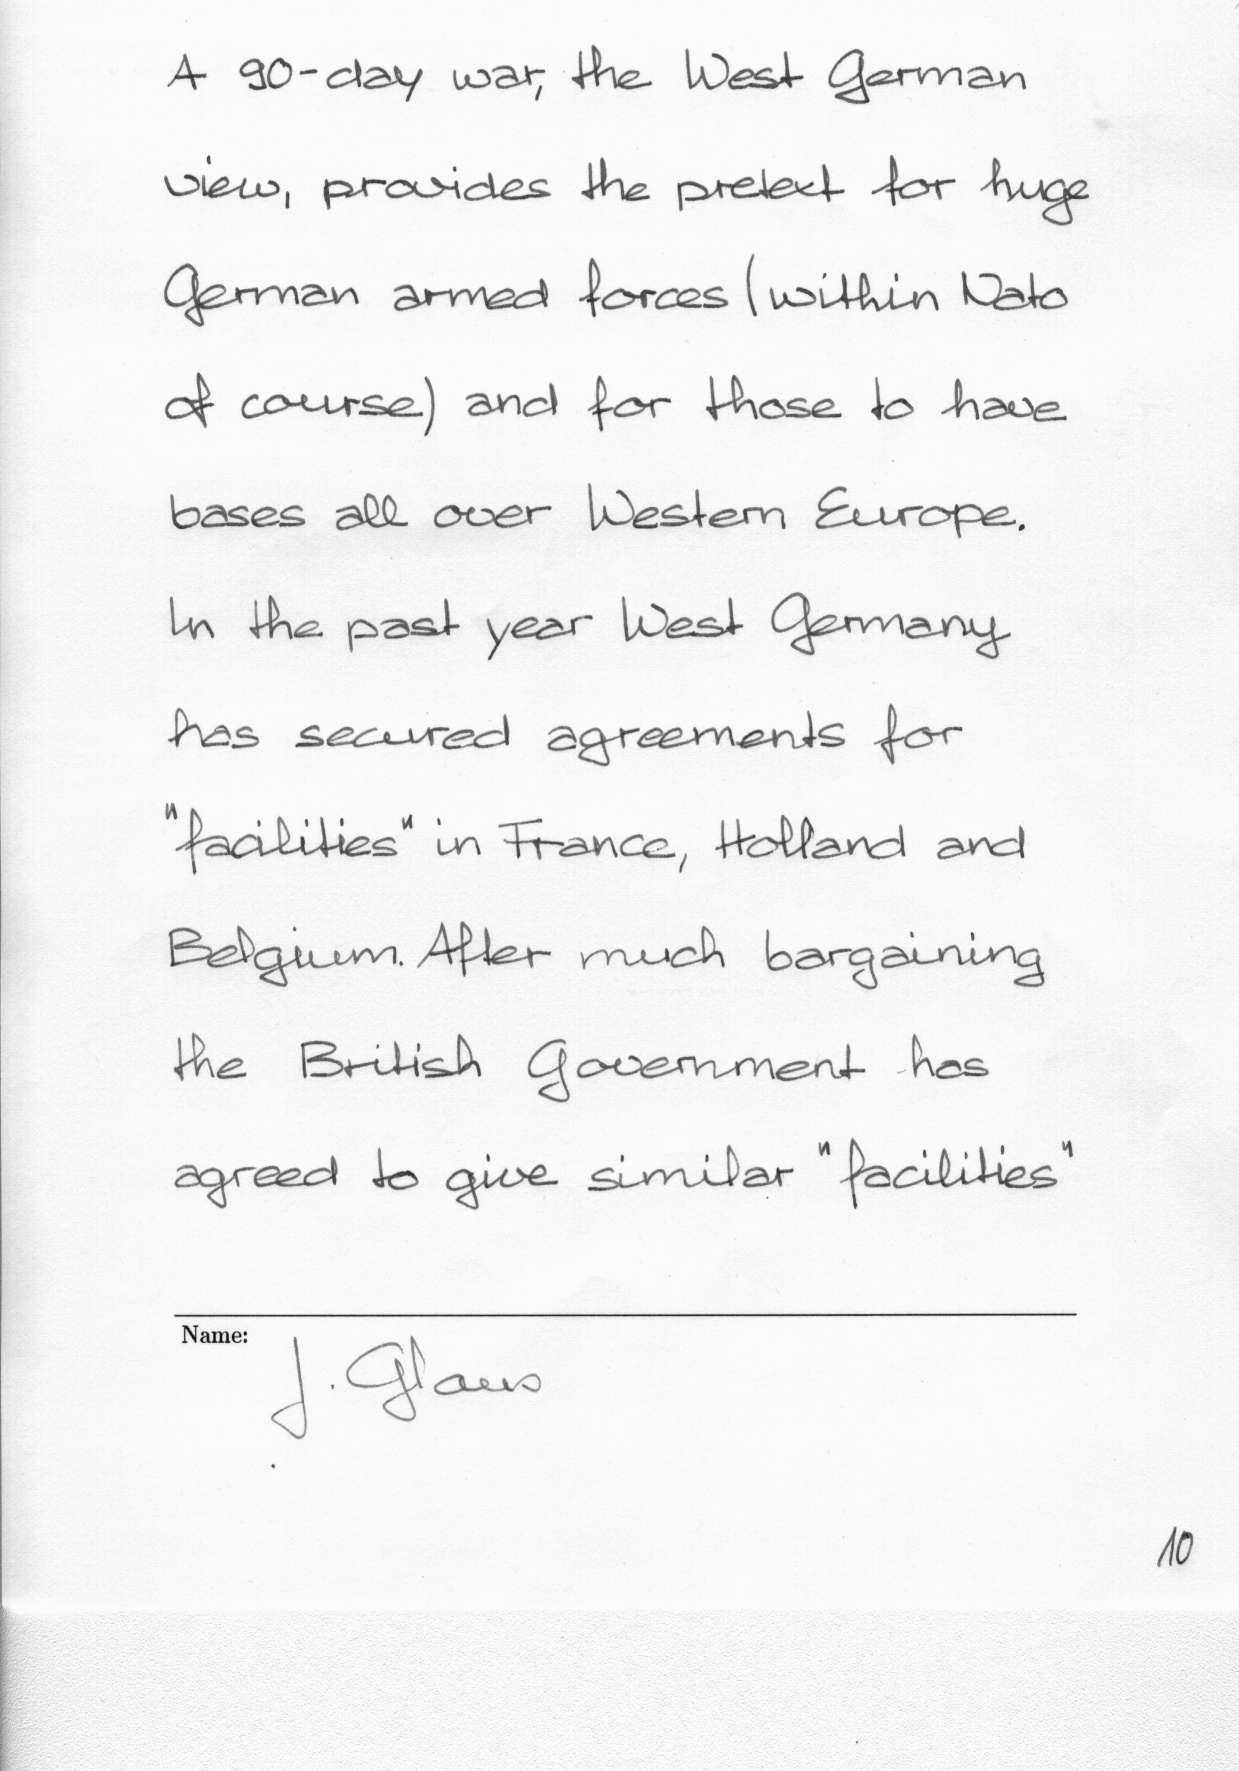 A 90-day war, the West German
view, provides the pretext for huge
German armed forces (within Nato
of course) and for those to have
bases all over Western Europe.
In the past year West Germany
has secured agreements for
"facilities" in France, Holland and
Belgium. After much bargaining
the British Government has
agreed to give similar "facilities"
Name:
J. Glaus
10